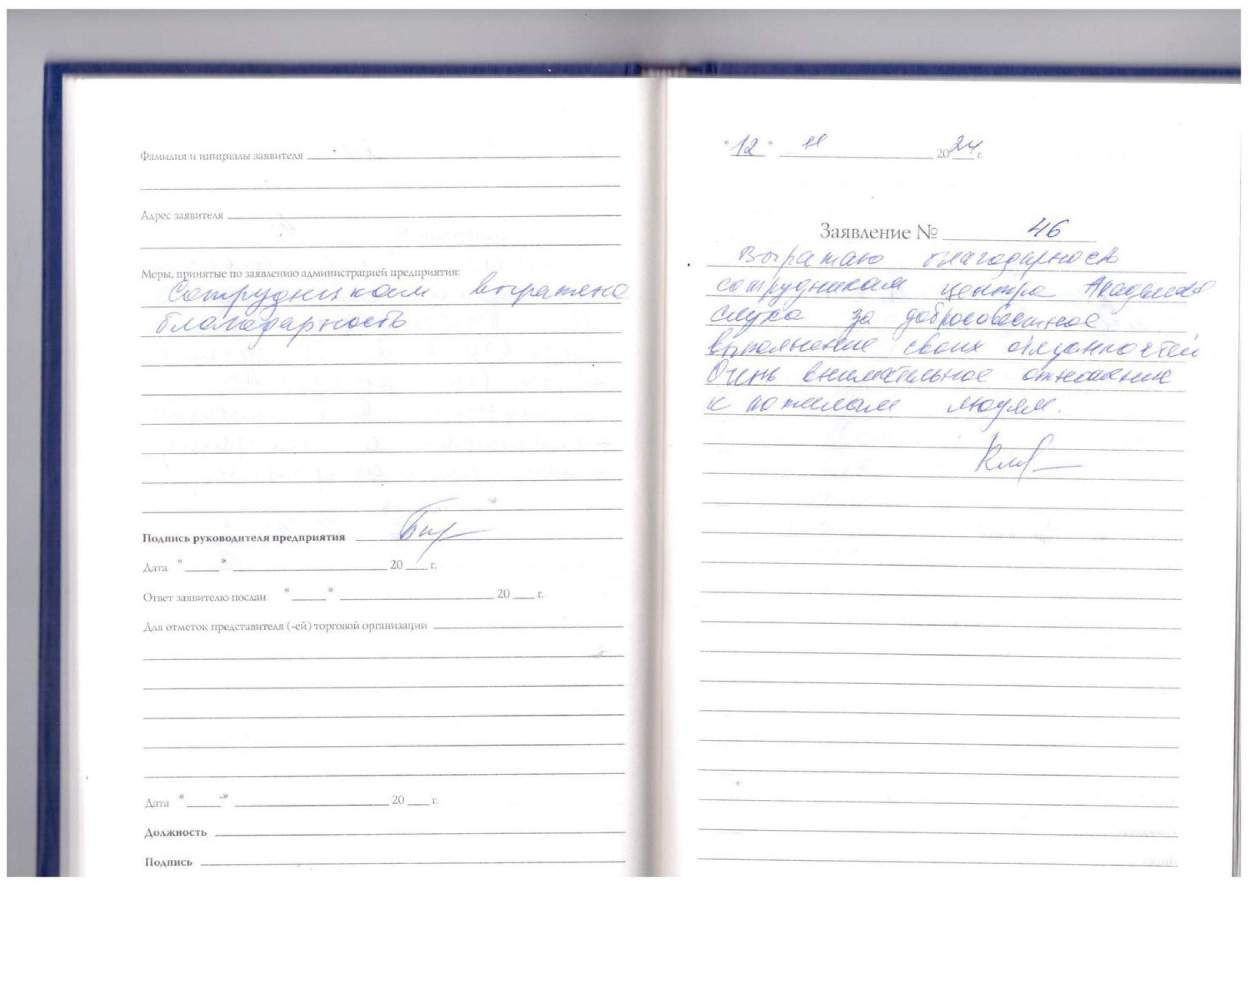 Фамилия и инициалы заявителя
Адрес заявителя
Меры, принятые по заявлению администрацией предприятия:
Сотрудникам выражена
благодарность
Подпись руководителя предприятия
Дата " " 20 г.
Ответ заявителю послан " " 20 г.
Для отметок представителя (-ей) торговой организации
Дата " " 20 г.
Должность
Подпись
"12" 11 2024 г.
Заявление № 46
Выражаю благодарность
сотрудникам центра Академия
слуха за добросовестное
выполнение своих обязанностей
Очень внимательное отношение
к пожилым людям.